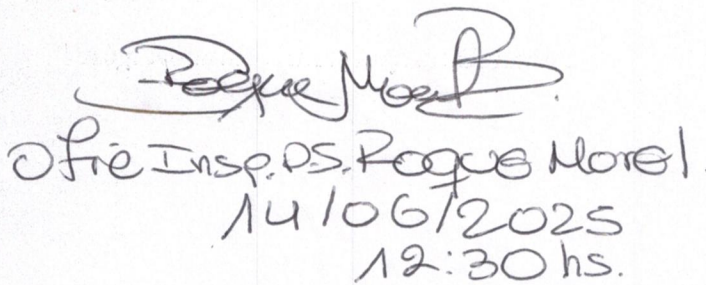 Roque Morel B.
Ofic Insp. P.S. Roque Morel.
14/06/2025
12:30 hs.